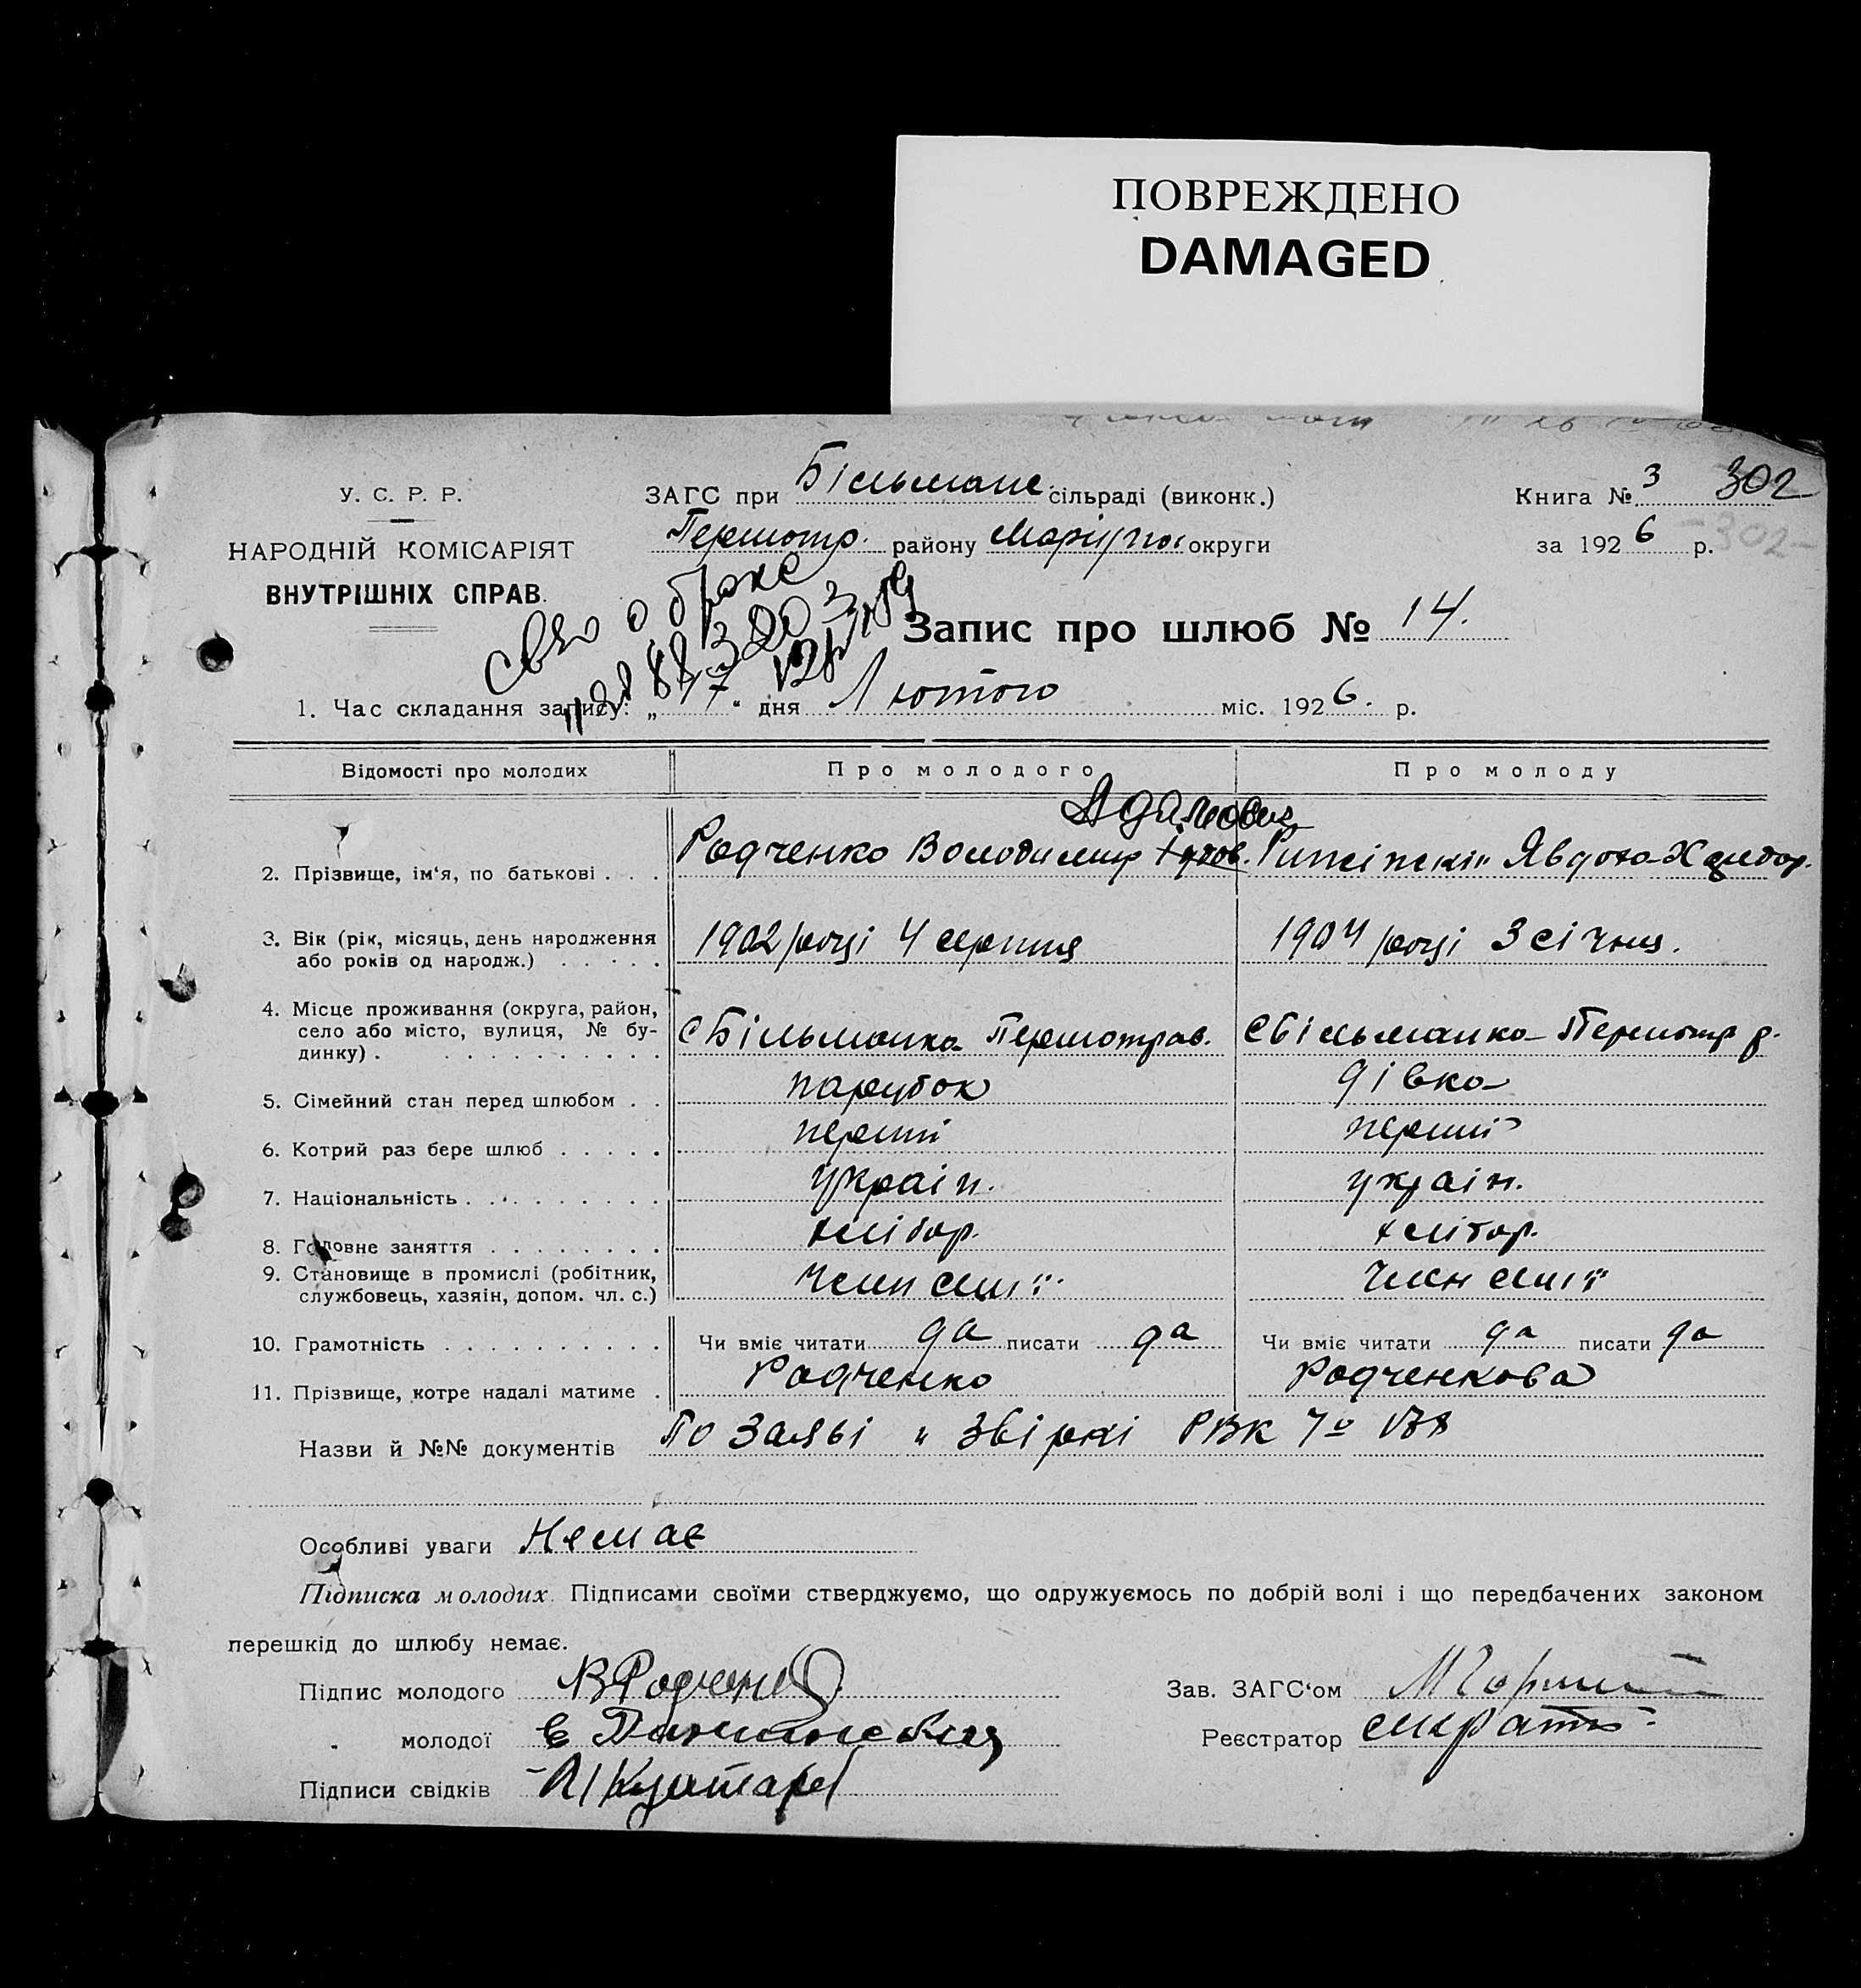 ПОВРЕЖДЕНО
DAMAGED
У. С. Р. Р.
НАРОДНІЙ КОМІСАРІЯТ
ВНУТРІШНІХ СПРАВ.
ЗАГС при Більманс. сільраді (виконк.)
Першотр. району Маріупол округи
Книга № 3 302
за 1926 р. -302-
св-во о браке
Запис про шлюб № 14.
1. Час складання запису: „ 17 " дня Лютого міс. 1926. р.
Відомості про молодих Про молодого Про молоду
Адамович
2. Прізвище, ім'я, по батькові . . . Радченко Володимир Явдоха Хведор.
3. Вік (рік, місяць, день народження або років од народж.) . . . . . 1902 році 4 серпня 1904 році 3 січня.
4. Місце проживання (округа, район, село або місто, вулиця, № будинку) . . . . . . . . . . . с Більманка Першотрав. с Більманка Першотр р.
5. Сімейний стан перед шлюбом . . парубок дівка
6. Котрий раз бере шлюб . . . . . перший перший
7. Національність . . . . . . . . . україн. україн.
8. Головне заняття . . . . . . . . хлібор. хлібор.
9. Становище в промислі (робітник, службовець, хазяін, допом. чл. с.) член сем'ї член сем'ї
10. Грамотність . . . . . . . . . . Чи вміє читати да писати да Чи вміє читати да писати да
11. Прізвище, котре надалі матиме . Радченко Радченкова
Назви й №№ документів По заяві и звіркі РВК
Особливі уваги Немає
Підписка молодих. Підписами своїми стверджуємо, що одружуємось по добрій волі і що передбачених законом
перешкід до шлюбу немає.
Підпис молодого В Радченко Зав. ЗАГС'ом
молодої Реєстратор
Підписи свідків